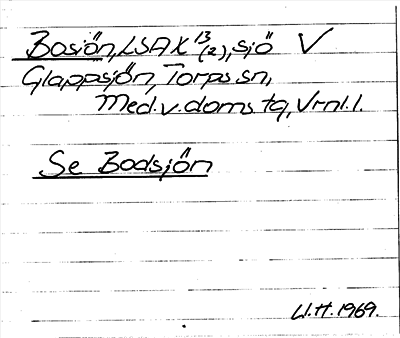 Bosjön, LSA X 13 (2), sjö V
Glappsjön, Torps sn,
Med. v. doms. tg, Vrnl. l.
Se Bodsjön
U.H. 1969.